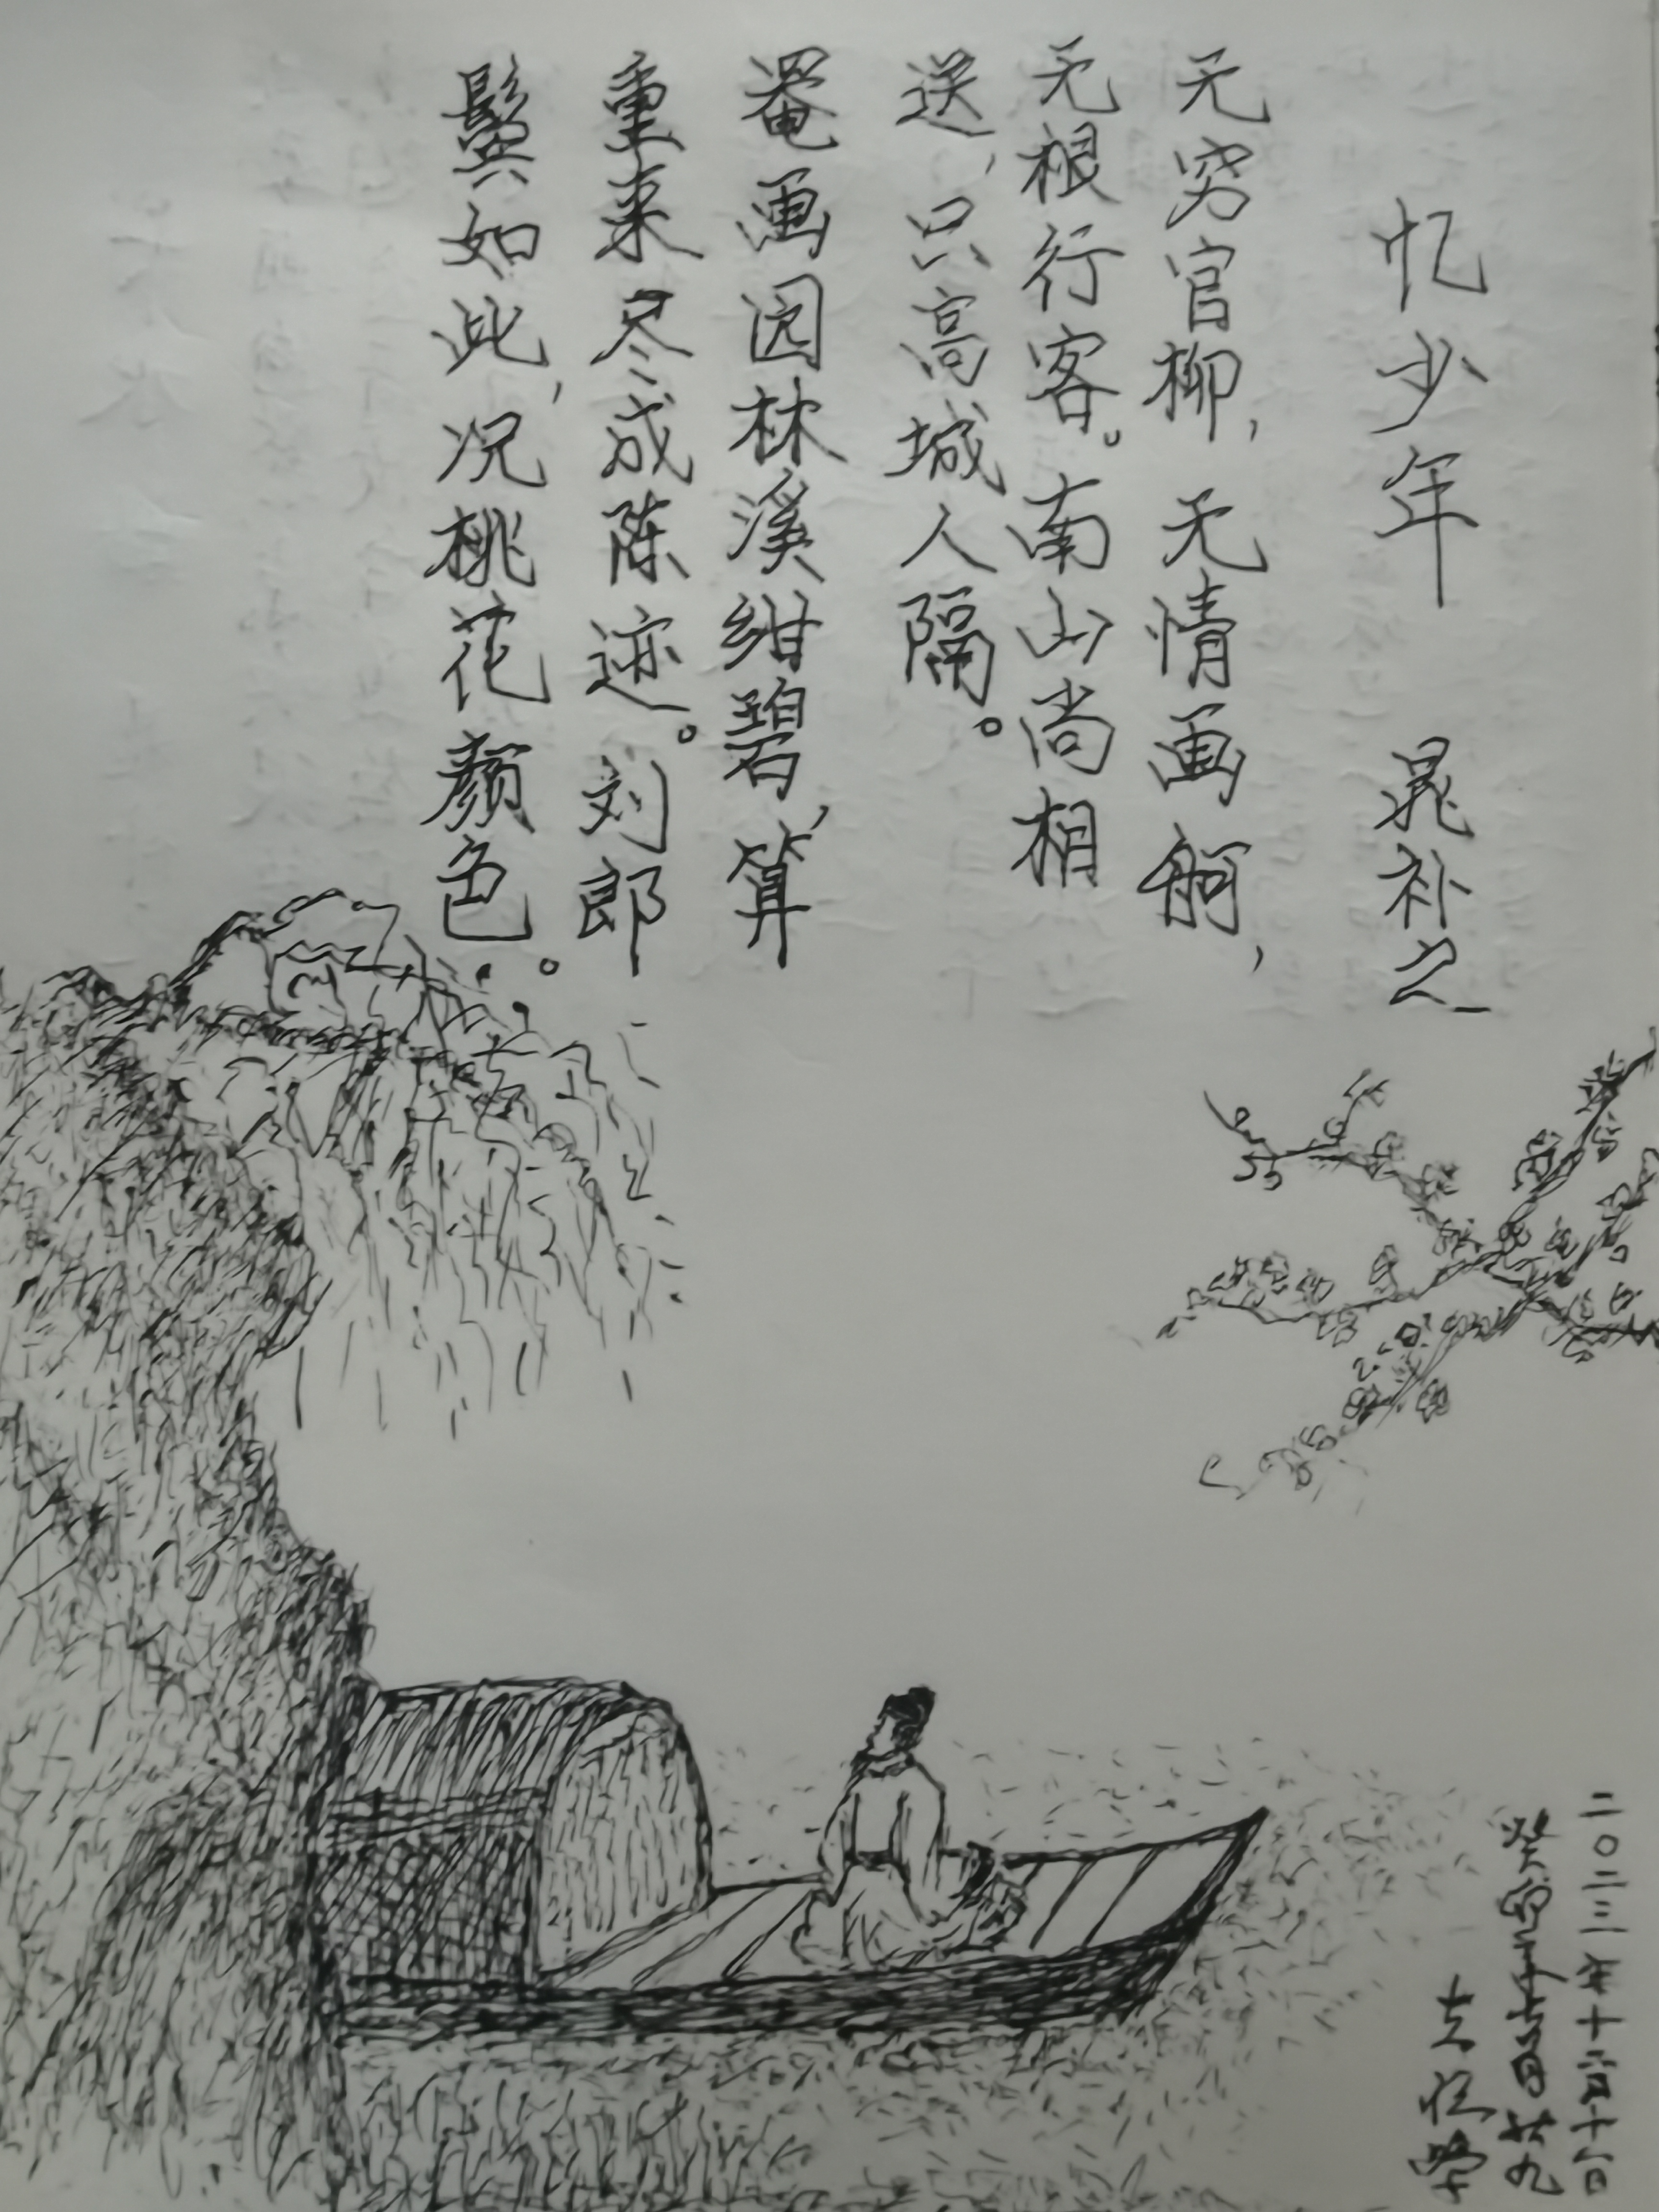 忆少年 晁补之
无穷官柳，无情画舸，
无根行客。南山尚相
送，只高城人隔。
罨画园林溪绀碧，算
重来尽成陈迹。刘郎
鬓如此，况桃花颜色。
二〇二三年十二月十八日